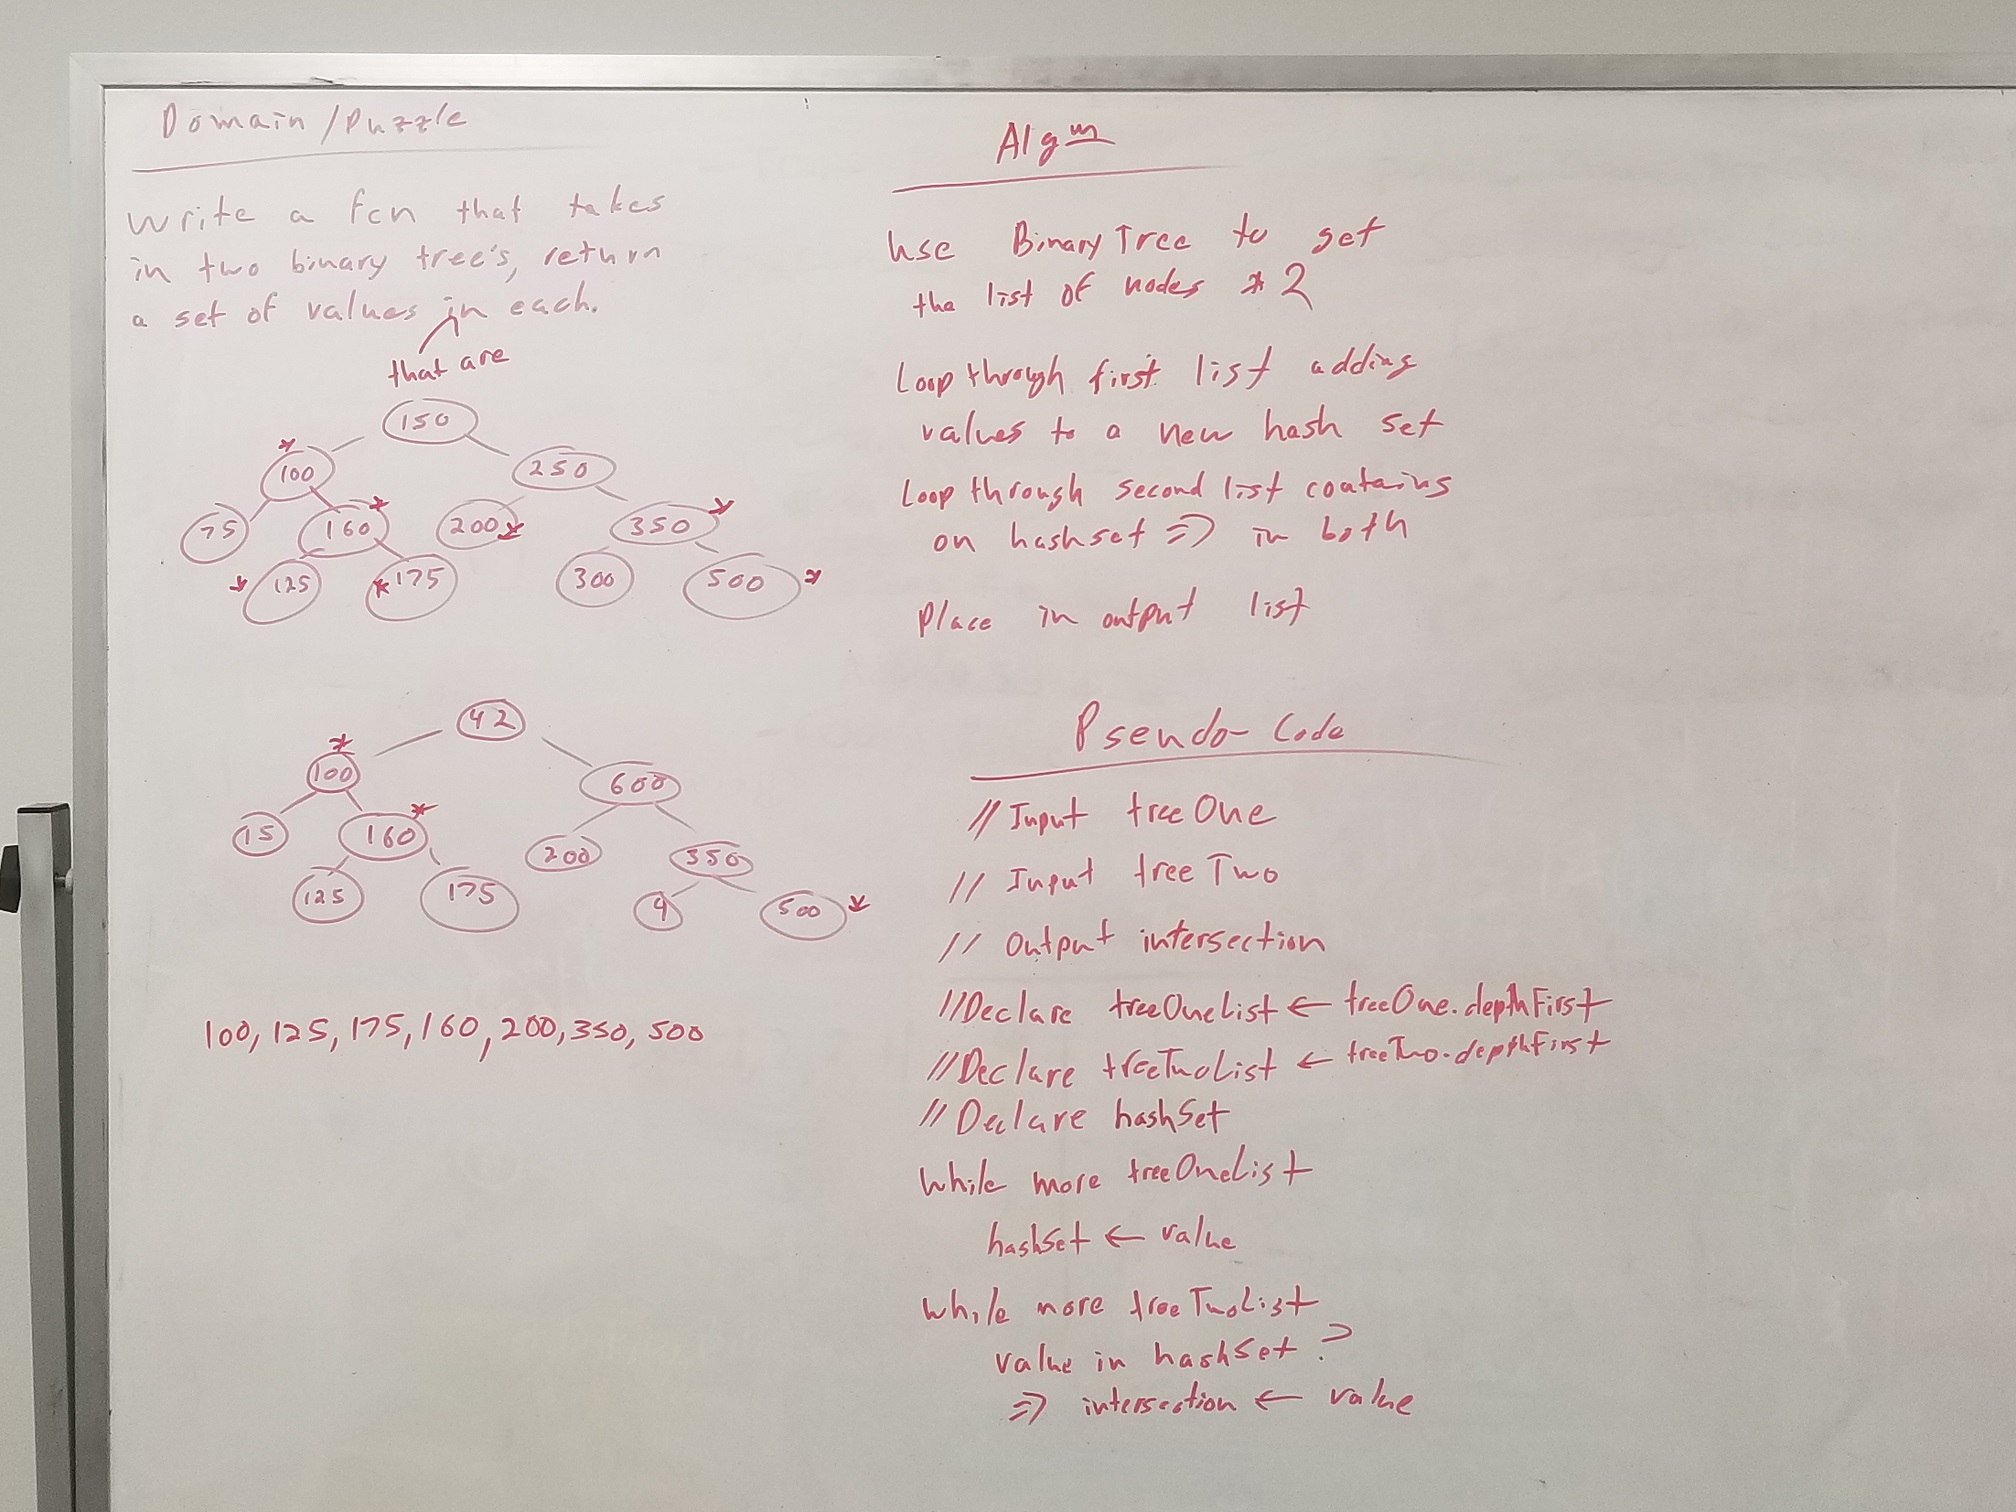 Domain/Puzzle
Write a fcn that takes
in two binary tree's, return
a set of values in each.
that are
150
* 100
250
75
160 *
200 *
350 *
* 125
* 175
300
500 *
42
* 100
600
15
160 *
200
350
125
175
9
500 *
100, 125, 175, 160, 200, 350, 500
Algm
Use Binary Tree to get
the list of nodes * 2
Loop through first list adding
values to a new hash set
Loop through second list contains
on hashset => in both
Place in output list
Pseudo-Code
// Input treeOne
// Input treeTwo
// Output intersection
//Declare treeOneList ← treeOne.depthFirst
//Declare treeTwoList ← treeTwo.depthFirst
//Declare hashSet
While more treeOneList
hashSet ← value
While more treeTwoList
value in hashSet?
=> intersection ← value